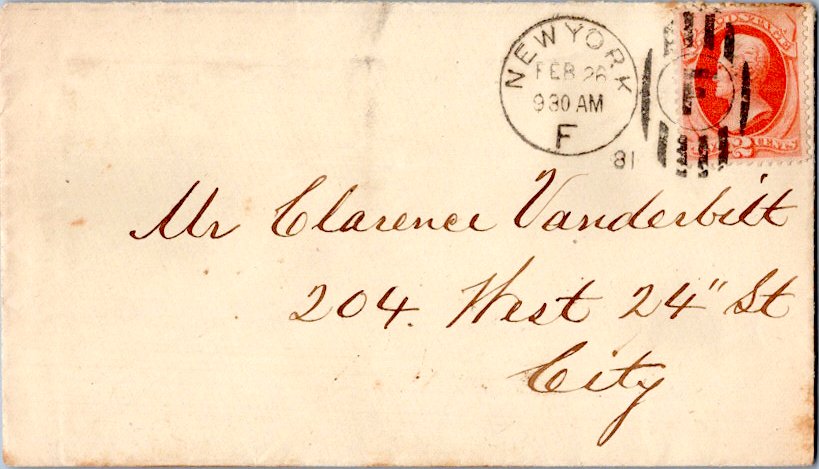 NEW YORK
FEB 26
930 AM
F
81
2 CENTS
Mr Clarence Vanderbilt
204. West 24" St
City